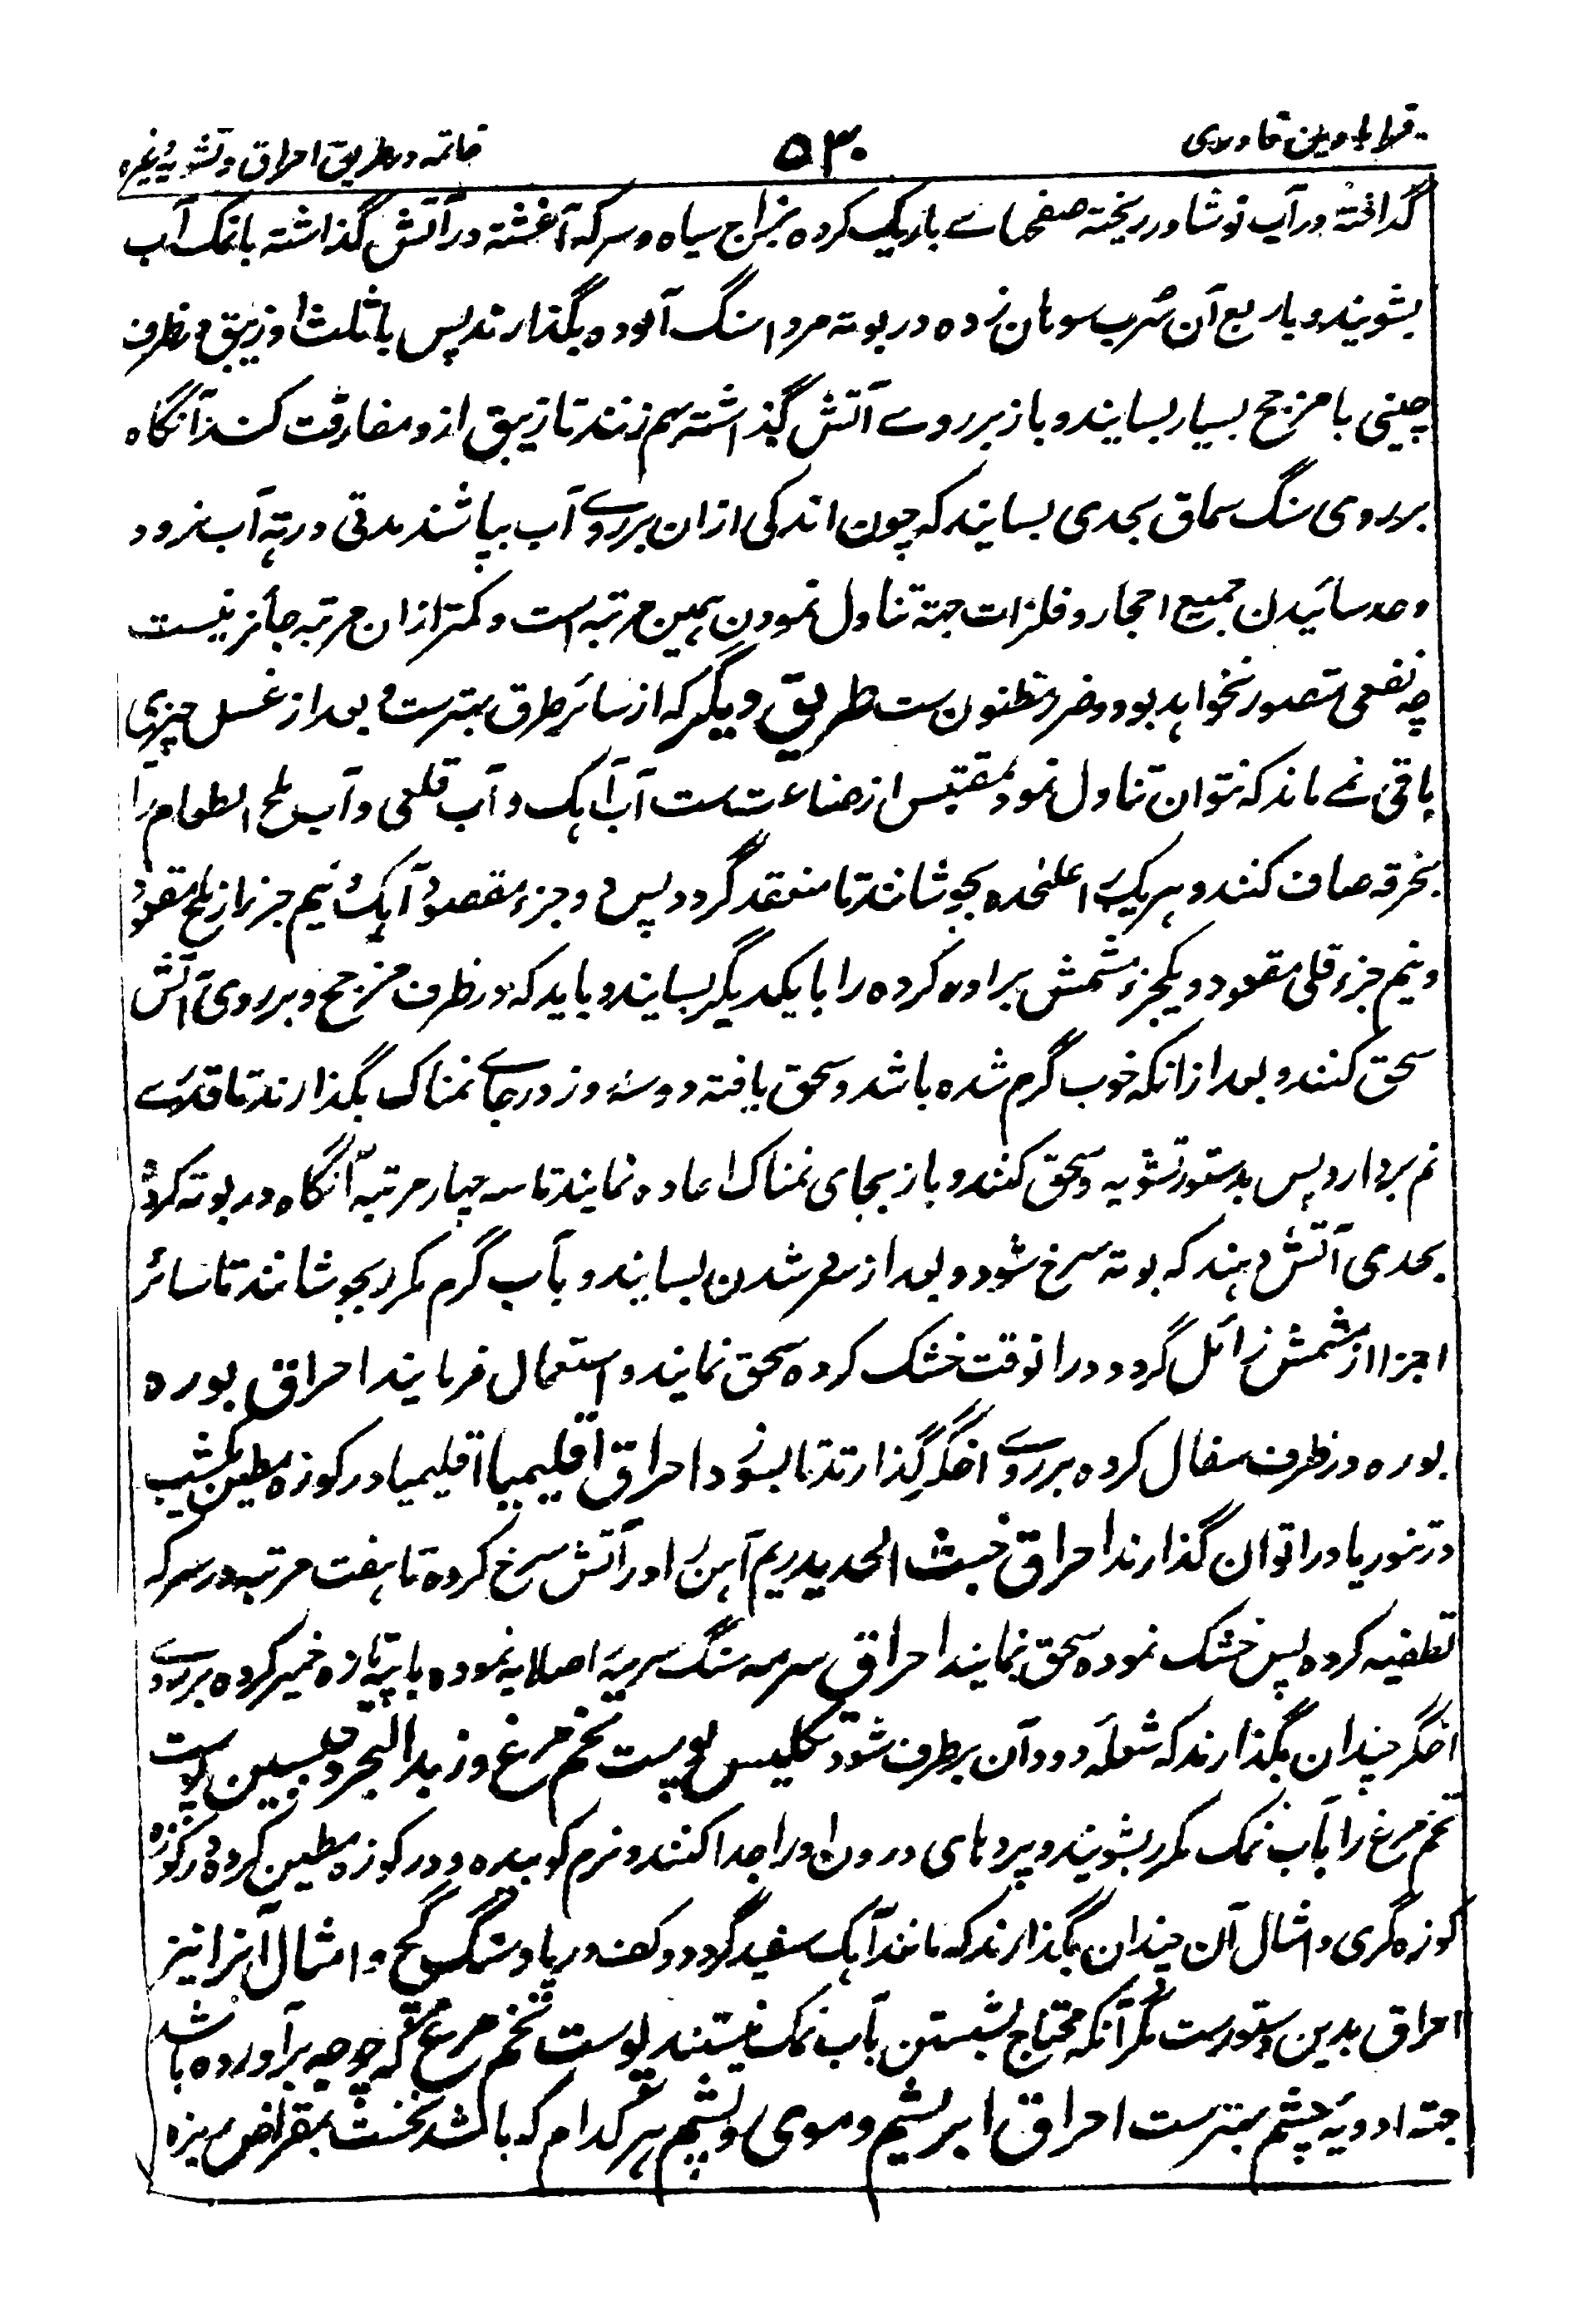 قرابادین قادری ۵۳۰ خاتمه در طریق احراق و تشویه وغیره
گداخته در آب نوشادر ریخته صفحهاے باریک کرده بزاج سیاه و سرکه آغشته در آتش گذاشته با نمک آب
بشویند و با ربع آن سرب سوهان زده در بوته مردا سنگ آلوده بگذارند پس با ثلث او زیبق در ظرف
چینی با مزجج بسیار بسایند و باز بر روے آتش گذاشته برهم زنند تا زیبق ازو مفارقت کند آنگاه
بر روی سنگ سماق بحدی بسایند که چون اندکی ازان بر روے آب بپاشند مدتی در ته آب نرود
و حد سائیدن جمیع احجار و فلزات جهته تناول نمودن همین مرتبه است و کمتر ازان مرتبه جائز نیست
چه نفعی متصور نخواهد بود و ضرر مظنون ست طریق دیگر که از سائر طرق بهترست و بعد از غسل چیزی
باقی نمے ماند که نتوان تناول نمود مقتبس از صناعت ست آب آهک و آب قلعی و آب ملح الطعام را
بخرقه صاف کنند و هر یک را علیحده بجوشانند تا منعقد گردد پس دو جزء معقود آهک و نیم جزء از ملح معقود
و نیم جزء قلی معقود و یکجزء شمش براده کرده را با یکدیگر بسایند و باید که در ظرف مزجج و بر روی آتش
سحق کنند و بعد ازانکه خوب گرم شده باشد و سحق یافته دو سه روز در جاے نمناک بگذارند تا قدرے
نم بردارد پس بدستور تشویه و سحق کنند و باز بجای نمناک اعاده نمایند تا سه چهار مرتبه آنگاه در بوته کرده
بحدی آتش دهند که بوته سرخ شود و بعد از سرد شدن بسایند و بآب گرم مکرر بجوشانند تا سائر
اجزا از شمش زائل گردد و درانوقت خشک کرده سحق نمایند و استعمال فرمایند احراق بوره
بوره در ظرف سفال کرده بر روے اخگر گذارند تا بسوزد احراق اقلیمیا اقلیمیا در کوزه مطین یکشب
در تنور یا در اتوان گذارند احراق خبث الحدید ریم آهن را در آتش سرخ کرده تا هفت مرتبه در سرکه
تطفیه کرده پس خشک نموده سحق نمایند احراق سرمه سنگ سرمه را صلایه نموده با پیه تازه خمیر کرده بر روے
اخگر چندان بگذارند که شعله و دود آن برطرف شود تکلیس پوست تخم مرغ و زبد البحر و جبسین پوست
تخم مرغ را بآب نمک مکرر بشویند و پردهای درون او را جدا کنند و نرم کوبیده و در کوزه مطین کرده در کوره
کوزه گری و امثال آن چندان بگذارند که مانند آهک سفید گردد و کف دریا و سنگ گچ و امثال آنرا نیز
احراق بدین دستورست مگر آنکه محتاج بشستن بآب نمک نیستند پوست تخم مرغ که چوجه برآورده باشد
جهته ادویه چشم بهترست احراق ابریشم و موی و پشم هر کدام که باشد نخست بمقراض ریزه